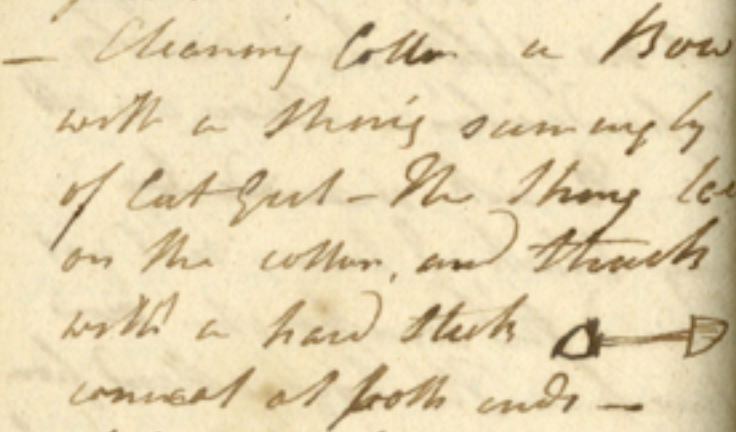 — Cleaning Cotton a Bow
with a String seemingly
of Cat Gut – The String
on the cotton, and Struck
with a hard Stick
conical at both ends —